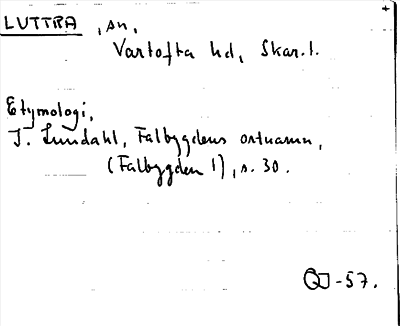 LUTTRA, sn,
Vartofta hd, Skar.l.
Etymologi,
I. Lundahl, Falbygdens ortnamn,
(Falbygden 1), s. 30.
-57.